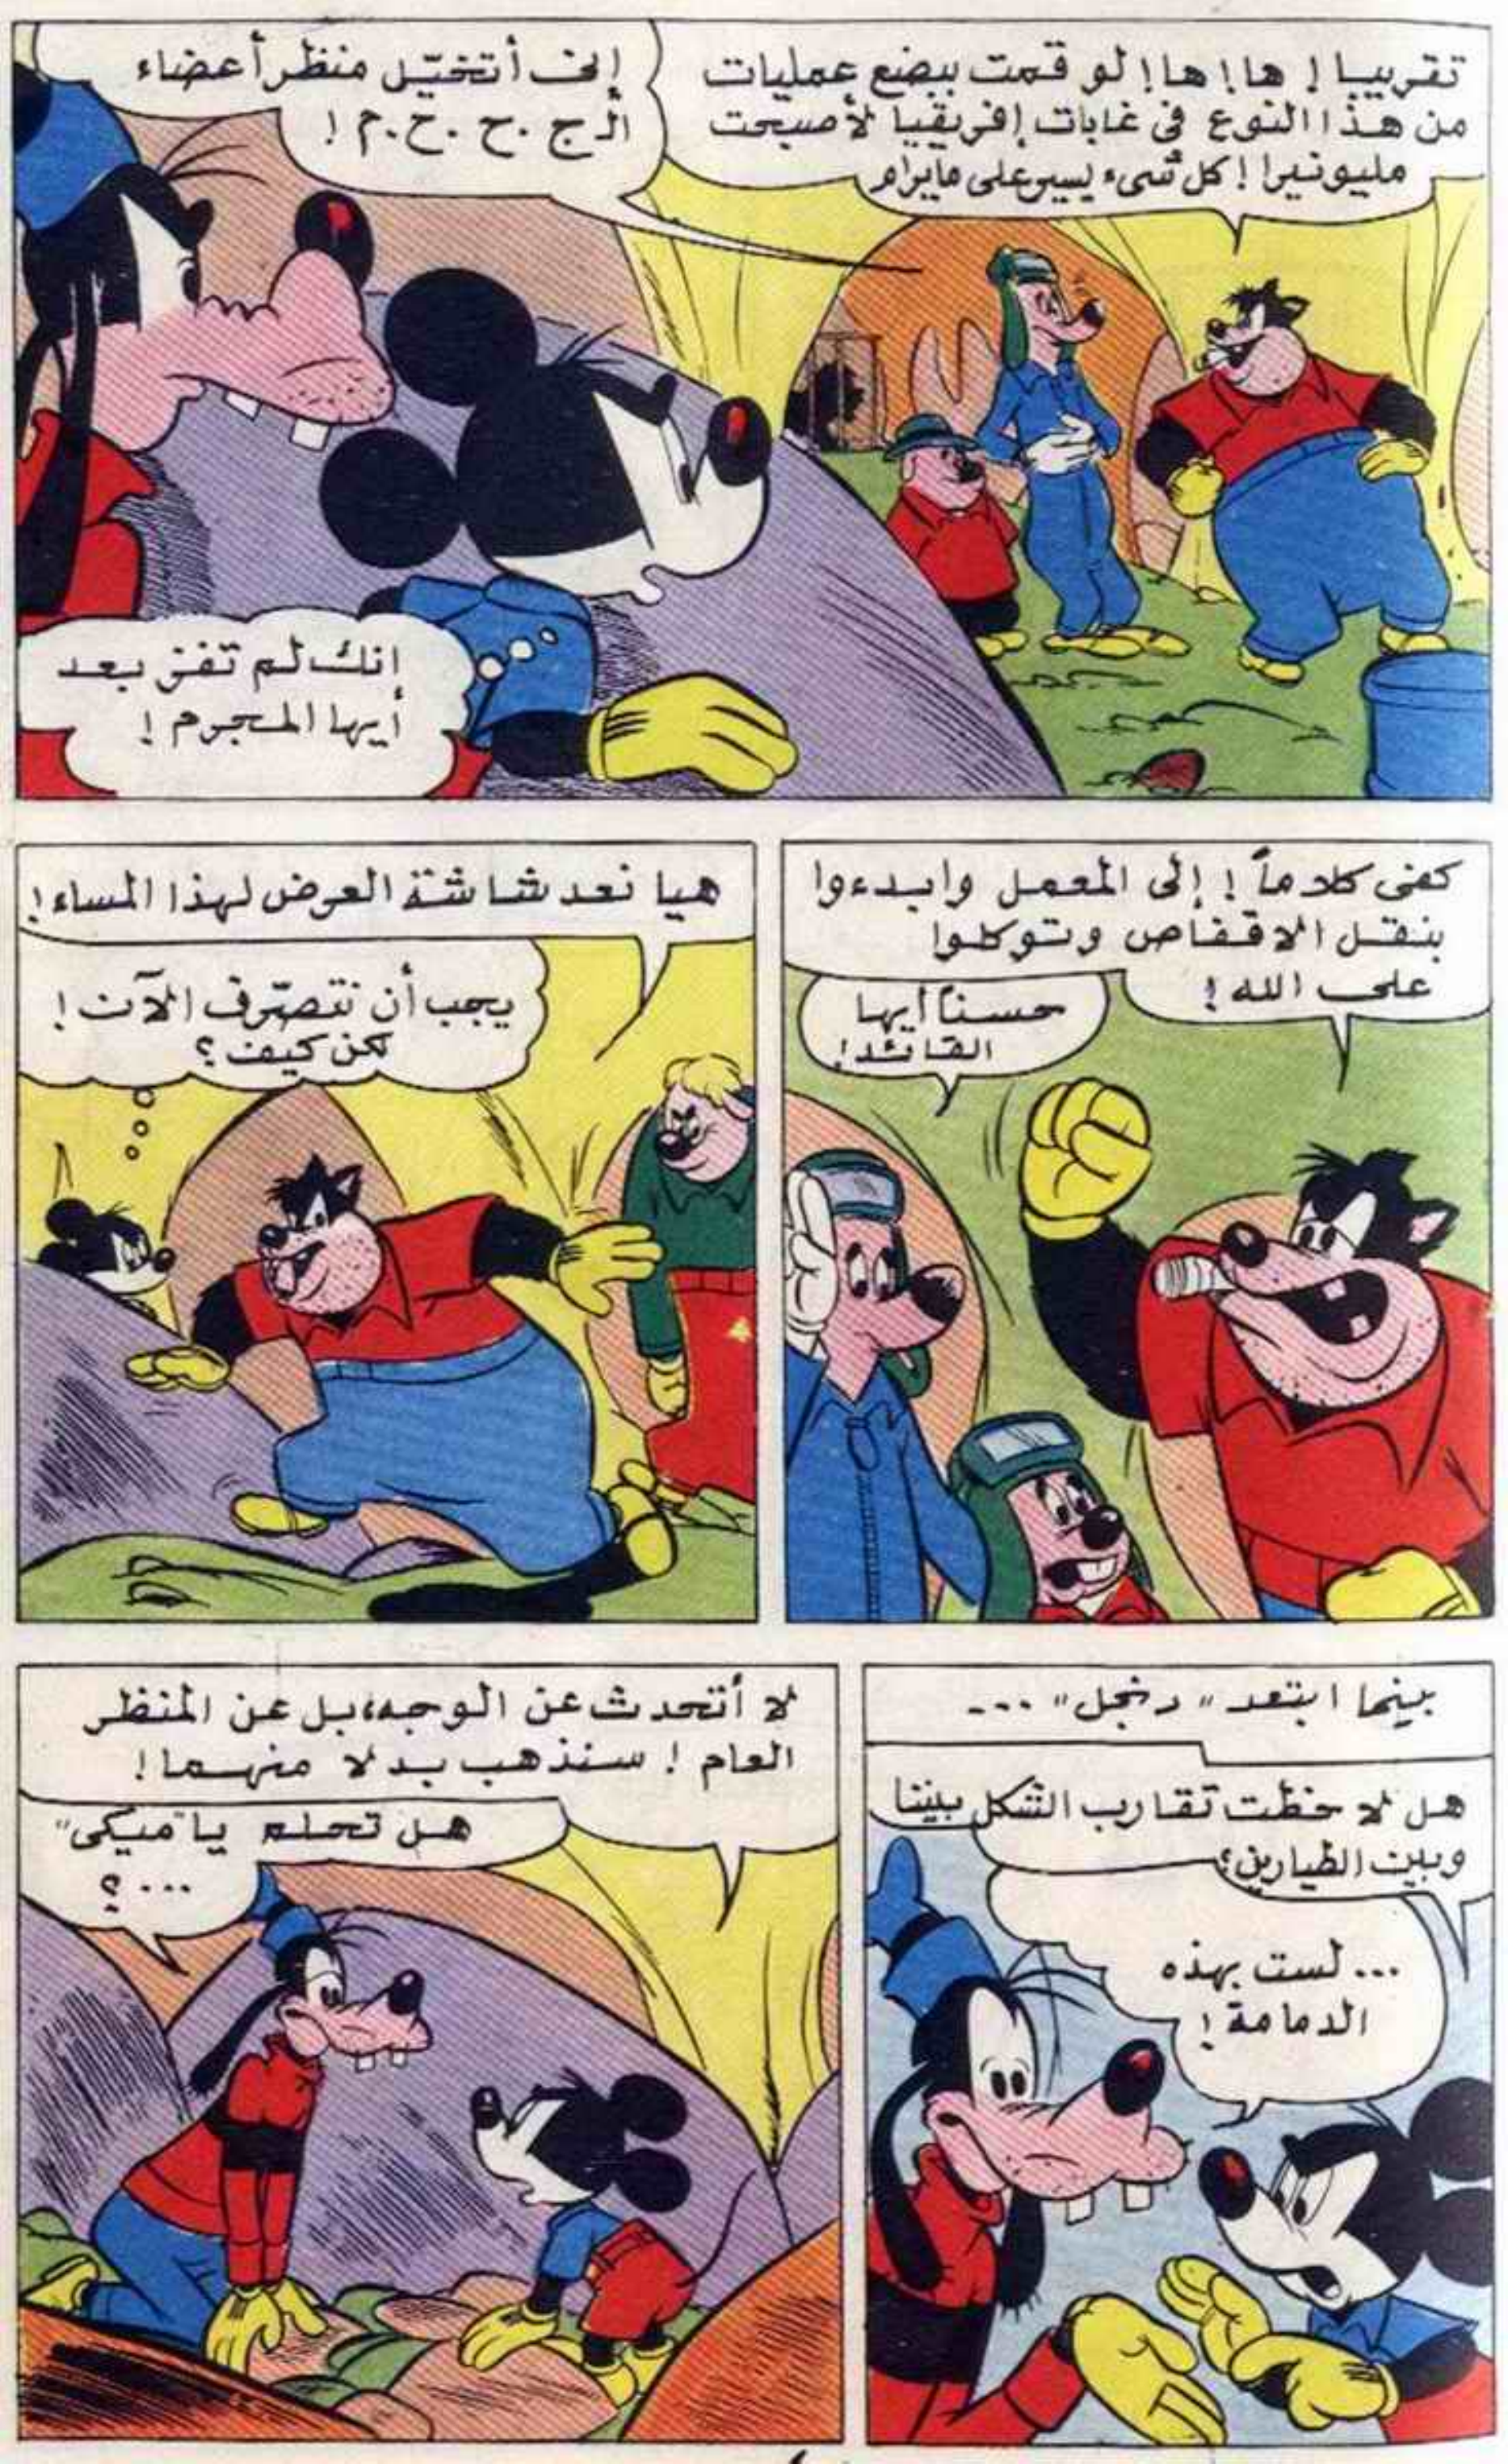 تقريبا ! ها ! ها ! لو قمت ببضع عمليات
من هذا النوع فى غابات إفريقيا لأصبحت
مليونيرا ! كل شىء يسير على مايرام
إنى أتخيّل منظر أعضاء
الـ ج . ح . ح . م !
انك لم تفز بعد
أيها المجرم !
كفى كلاماً ! إلى المعمل وابدءوا
بنقل الاقفاص وتوكلوا
على الله !
حسناً أيها
القائد !
هيا نعد شاشة العرض لهذا المساء !
يجب أن نتصرّف الآن !
لكن كيف ؟
بينما ابتعد " دنجل " ...
هل لاحظت تقارب الشكل بيننا
وبين الطيارين ؟
... لست بهذه
الدمامة !
لا أتحدث عن الوجه، بل عن المنظر
العام ! سنذهب بدلا منهما !
هل تحلم يا "ميكى"
... ؟